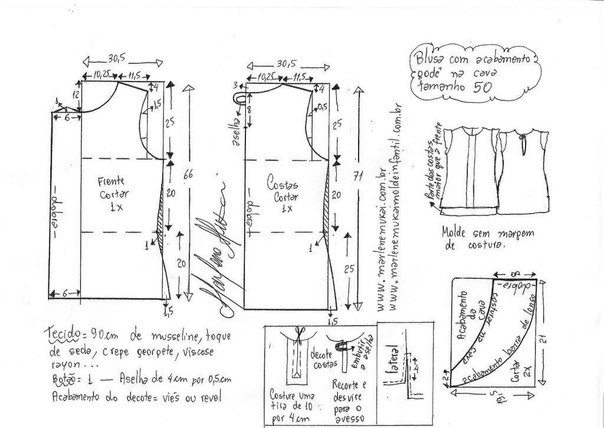 30,5
10,25 11,5
4
12
1
6
25
66
20
20
1
6
1,5
dobra
Frente
Cortar
1x
30,5
10,25 11,5
3
8
4
0,5
aselha
25
71
20
25
1
1,5
dobra
Costas
Cortar
1x
www.marlenemukai.com.br
www.marlenemukaimoldeinfantil.com.br
Blusa com acabamento
godê na cava
tamanho 50
Parte das costas
maior que a frente
Molde sem margem
de costura.
8
dobra
Acabamento
da cava
viés ou
acabamento barra de lenço
Cortar
2x
21
2
15
Tecido = 90cm de musseline, toque
de seda, crepe georgete, viscose
rayon...
Botão = 1 — Aselha de 4cm por 0,5cm
Acabamento do decote = viés ou revel
decote
costas
Embutir
a aselha
Costure uma
tira de 10
por 4cm
Recorte e
desvire
para o
avesso
lateral